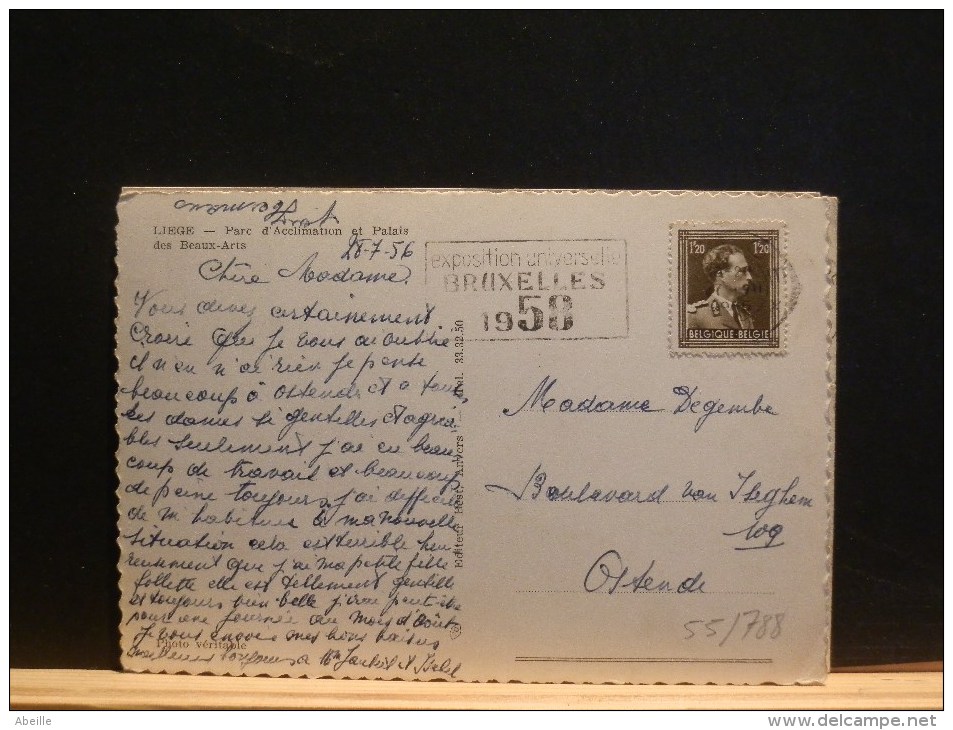 LIEGE — Parc d'Acclimation et Palais
des Beaux-Arts
28-7-56
Chère Madame
Vous devez certainement
croire que je vous ai oublié
il n'en n'ai rien je pense
beaucoup à Ostende et a
ces dames si gentilles et agréa
bles seulement j'ai eu beau
coup de travail et beaucoup
de peine toujours j'ai difficile
de m'habituer à ma nouvelle
situation cela est terrible heu
reusement que j'ai ma petite fille
follette elle est tellement gentille
et toujours bien belle j'irai peut-être
pour une journée au mois d'Août
Je vous envoie mes bons baisers
toujours a
Photo véritable
Editeur Best, Anvers Tel. 33.32.50
exposition universelle
BRUXELLES
1958
1'20 1'20
BELGIQUE·BELGIE
Madame Degembe
Boulevard van Iseghem
109
Ostende
55/788
Abeille
http://www.delcampe.net